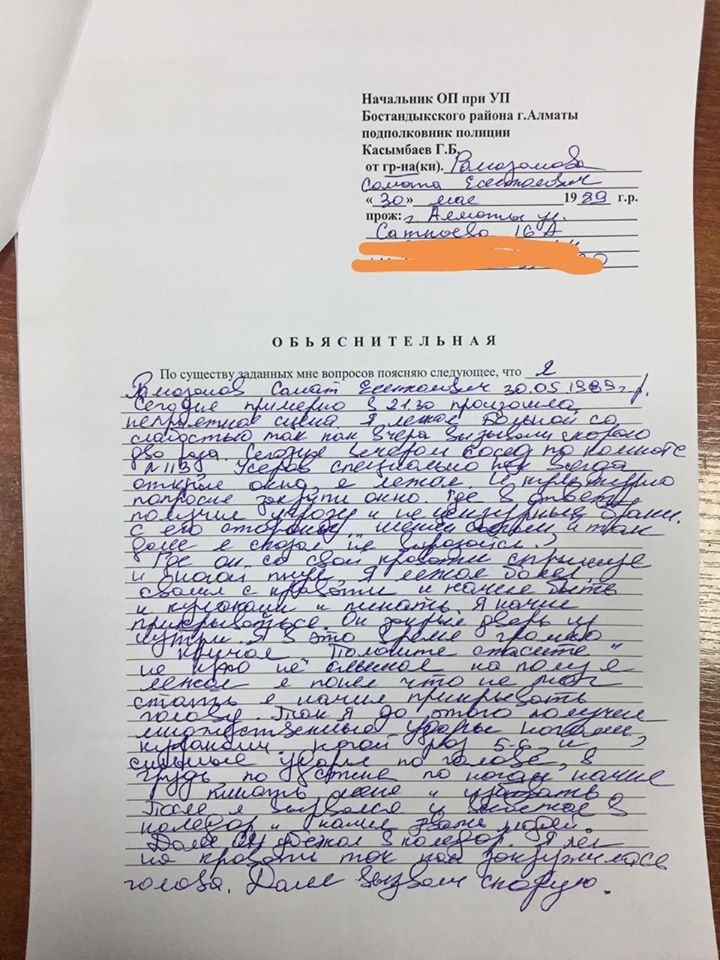 Начальник ОП при УП
Бостандыкского района г.Алматы
подполковник полиции
Касымбаев Г.Б.
от гр-на(ки). Рамазанова
Самата Есенжоевич
« 30 » мае 1989 г.р.
прож: г. Алматы ул.
Сатпаева 16 А
ОБЬЯСНИТЕЛЬНАЯ
По существу заданных мне вопросов поясняю следующее, что Я
Рамазанов Самат 30.05.1989 г.р.
Сегодня примерно в 21.30 произошла
неприятная сцена. Я лежал больной со
слабостью так как вчера вызывали скорою
два раза. Сегодня вечером сосед по комнате
№ 1132 специально как всегда
открыл окно, я лежал. И
попросил закрыть окно. Где в ответ
получил угрозу и не цензурные брани.
с его стороны, и так
дале я сказал не
Где он со своей кровати спрыгнул
и Я лежал
с кровати и начил быть
и кулаками и пинать. Я начил
прикрываться. Он закрыл дверь из
нутри. Я в это время громко
кричал "Помогите спасите"
не на полу я
лежал я понел что не мог
встать я начил прикрывать
голову. Так я до этого получил
множественные удары ногами
кулаками, ногой раз 5-6, и
сильные удары по голове, в
грудь, по спине по ногам начил
пинать меня и
После я вырвался и вылетел в
колидор и начил звать людей.
Дале он в колидор. Я лег
на кровать так как закружилась
голова. Дале вызвали скорую.